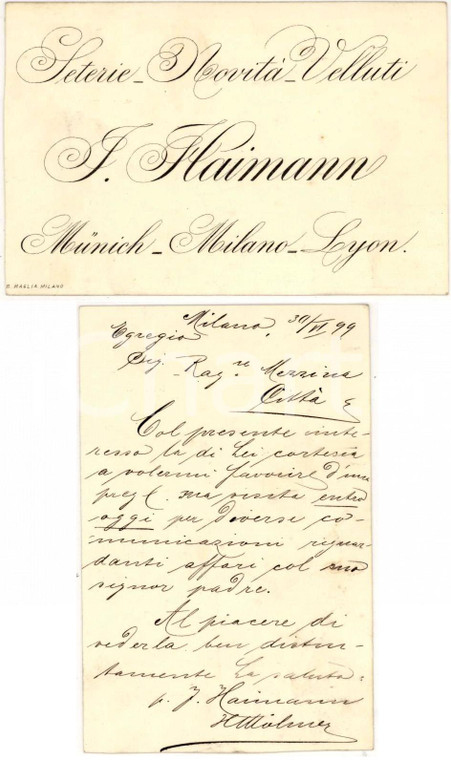 Seterie_Novità_Velluti
J. Haimann
Münich_Milano_Lyon.
MAGLIA MILANO
Milano, 30/VI 99
Egregio
Sig. Rag.re Merrina
Città
Col presente inte-
resso la di Lei cortesia
a volermi favorire d'una
preg. sua visita entro
oggi per diverse co-
municazioni riguar-
danti affari col suo
signor padre.
Al piacere di
vederla ben distin-
tamente La saluta
p. J. Haimann